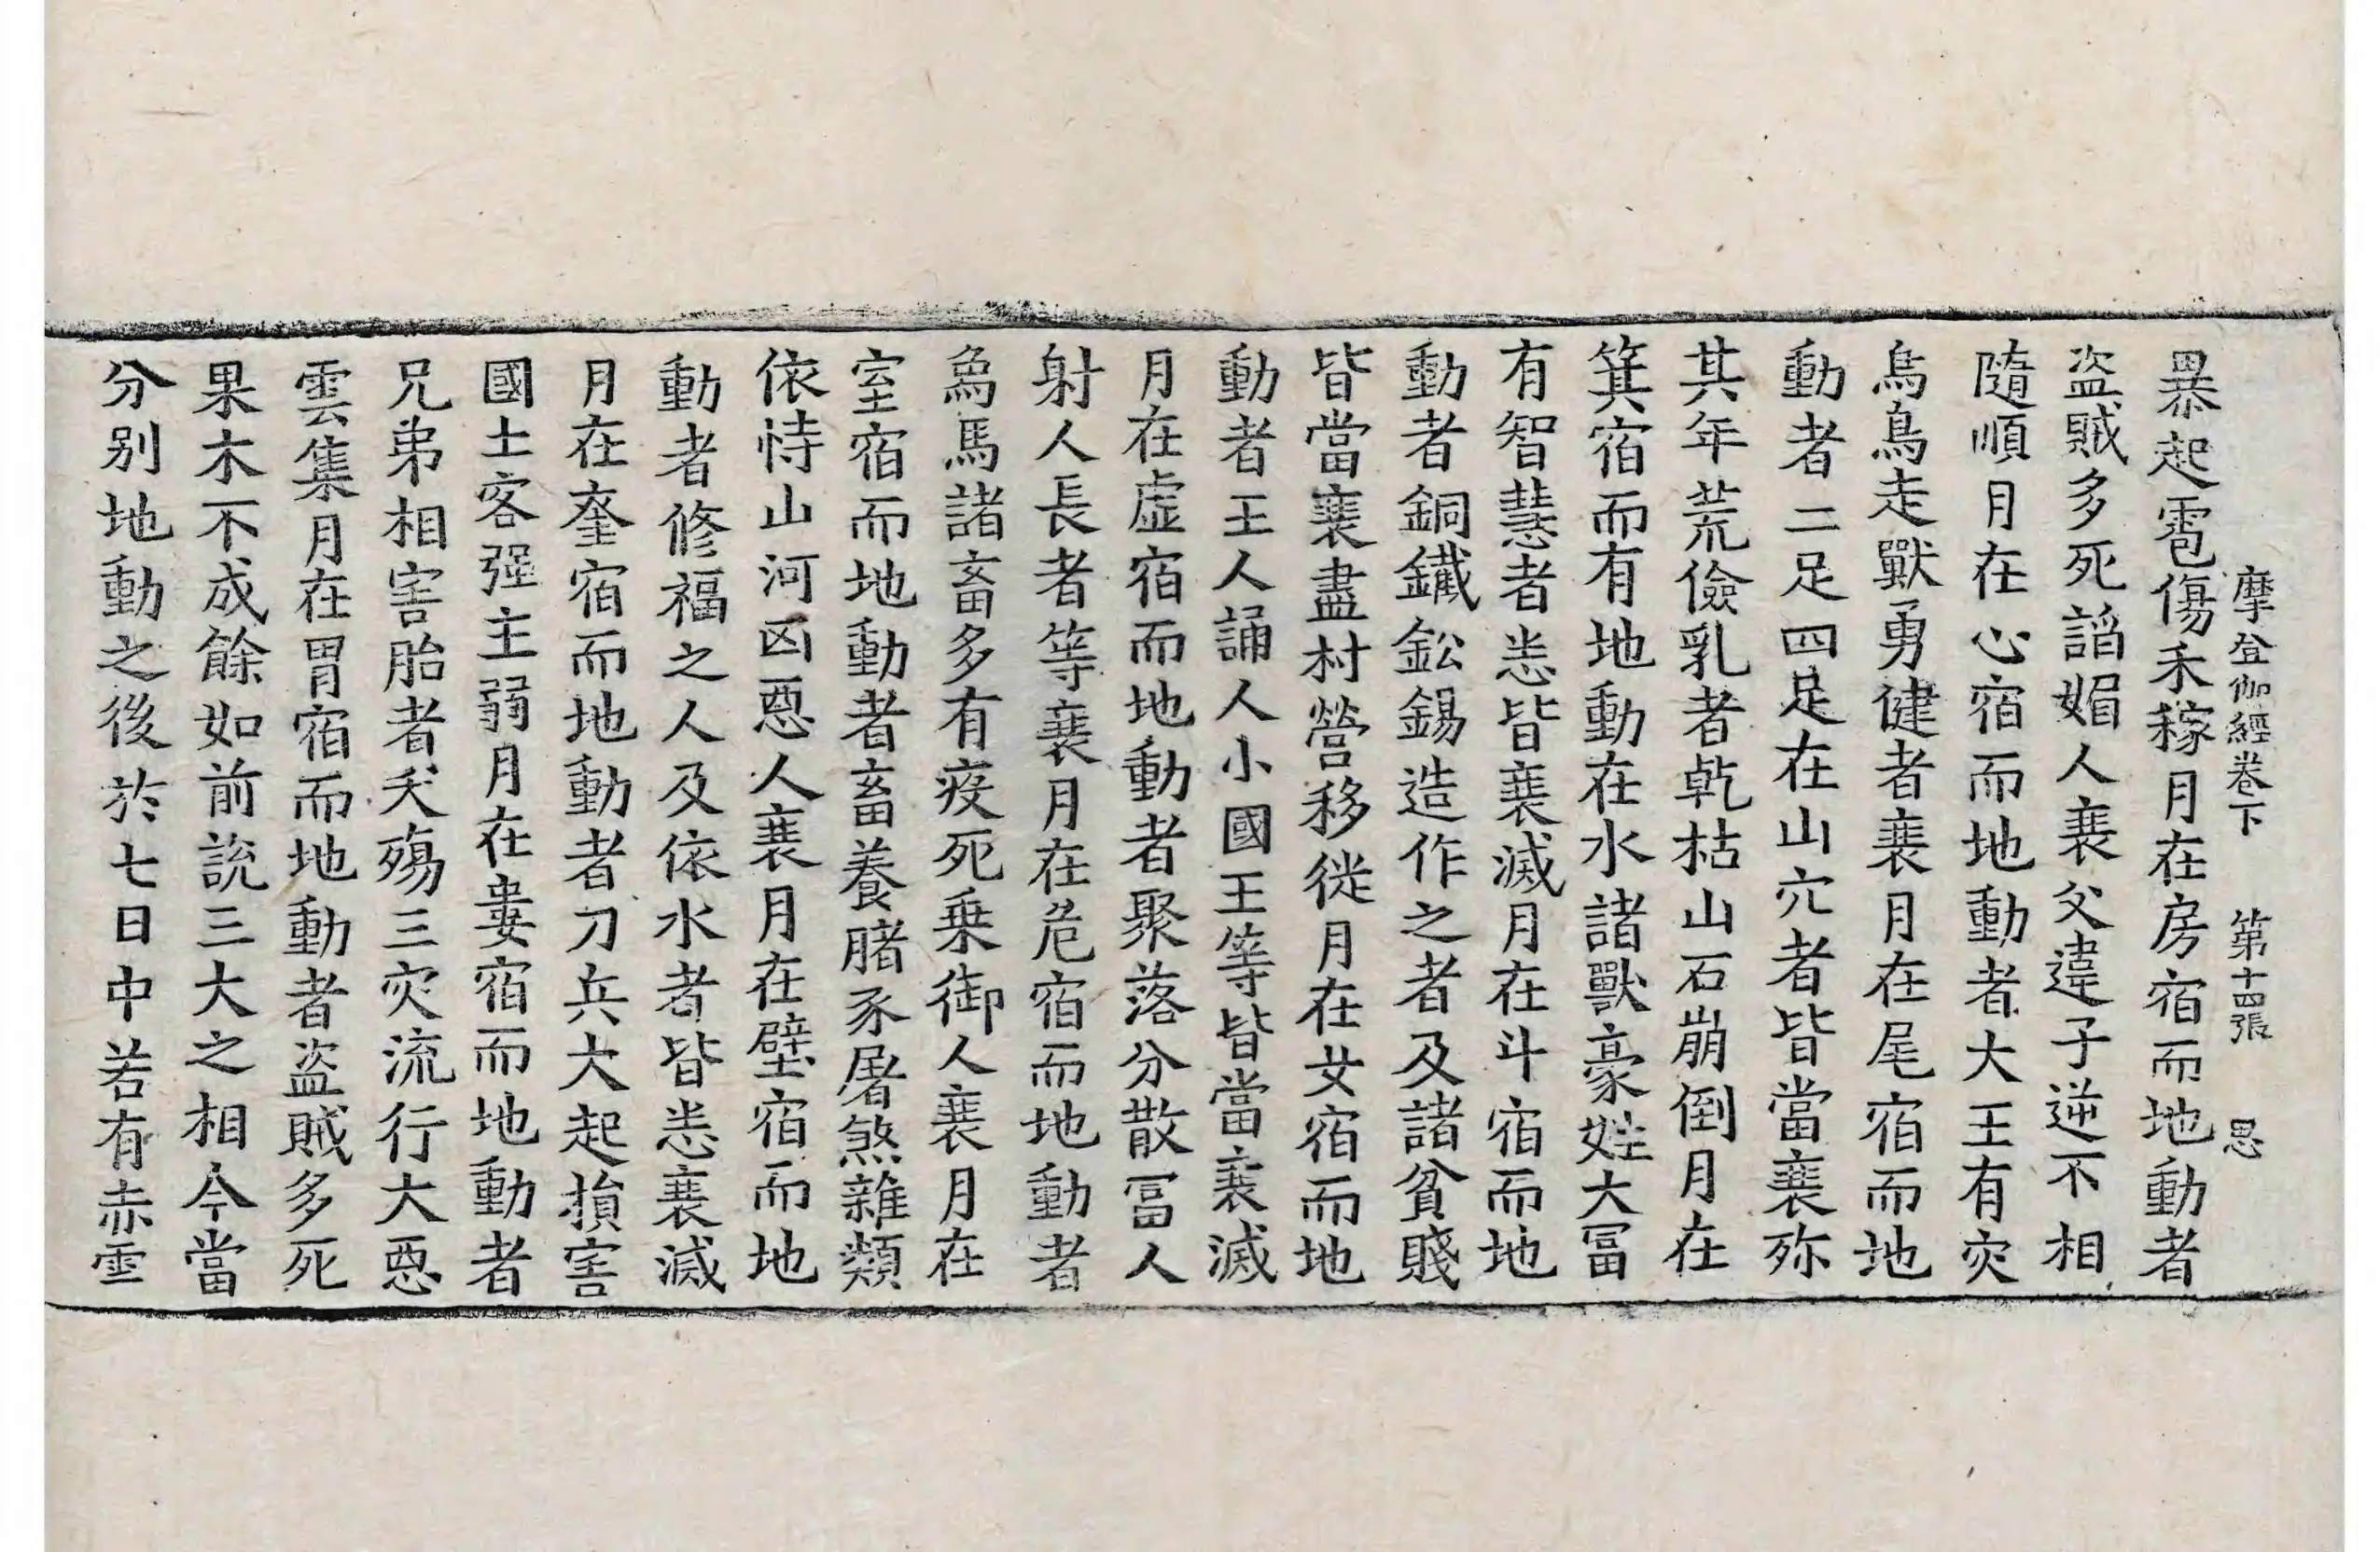 摩登伽經卷下 第十四張 思
暴起雹傷禾稼月在房宿而地動者
盗賊多死謟媚人衰父違子逆不相
隨順月在心宿而地動者大王有灾
鳥鳥走獸勇健者衰月在尾宿而地
動者二足四足在山穴者皆當衰弥
其年荒儉乳者乾枯山石崩倒月在
箕宿而有地動在水諸獸豪姓大冨
有智慧者悉皆衰滅月在斗宿而地
動者銅鐵鈆錫造作之者及諸貧賤
皆當衰盡村營移從月在女宿而地
動者王人誦人小國王等皆當衰滅
月在虛宿而地動者聚落分散冨人
射人長者等衰月在危宿而地動者
為馬諸畜多有疫死乗御人衰月在
室宿而地動者畜養䐗豕屠煞雜類
依恃山河凶惡人衰月在壁宿而地
動者修福之人及依水者皆悉衰滅
月在奎宿而地動者刀兵大起損害
國土客强主弱月在婁宿而地動者
兄弟相害胎者夭殤三灾流行大惡
雲集月在胃宿而地動者盗賊多死
果木不成餘如前說三大之相今當
分别地動之後於七日中若有赤雲